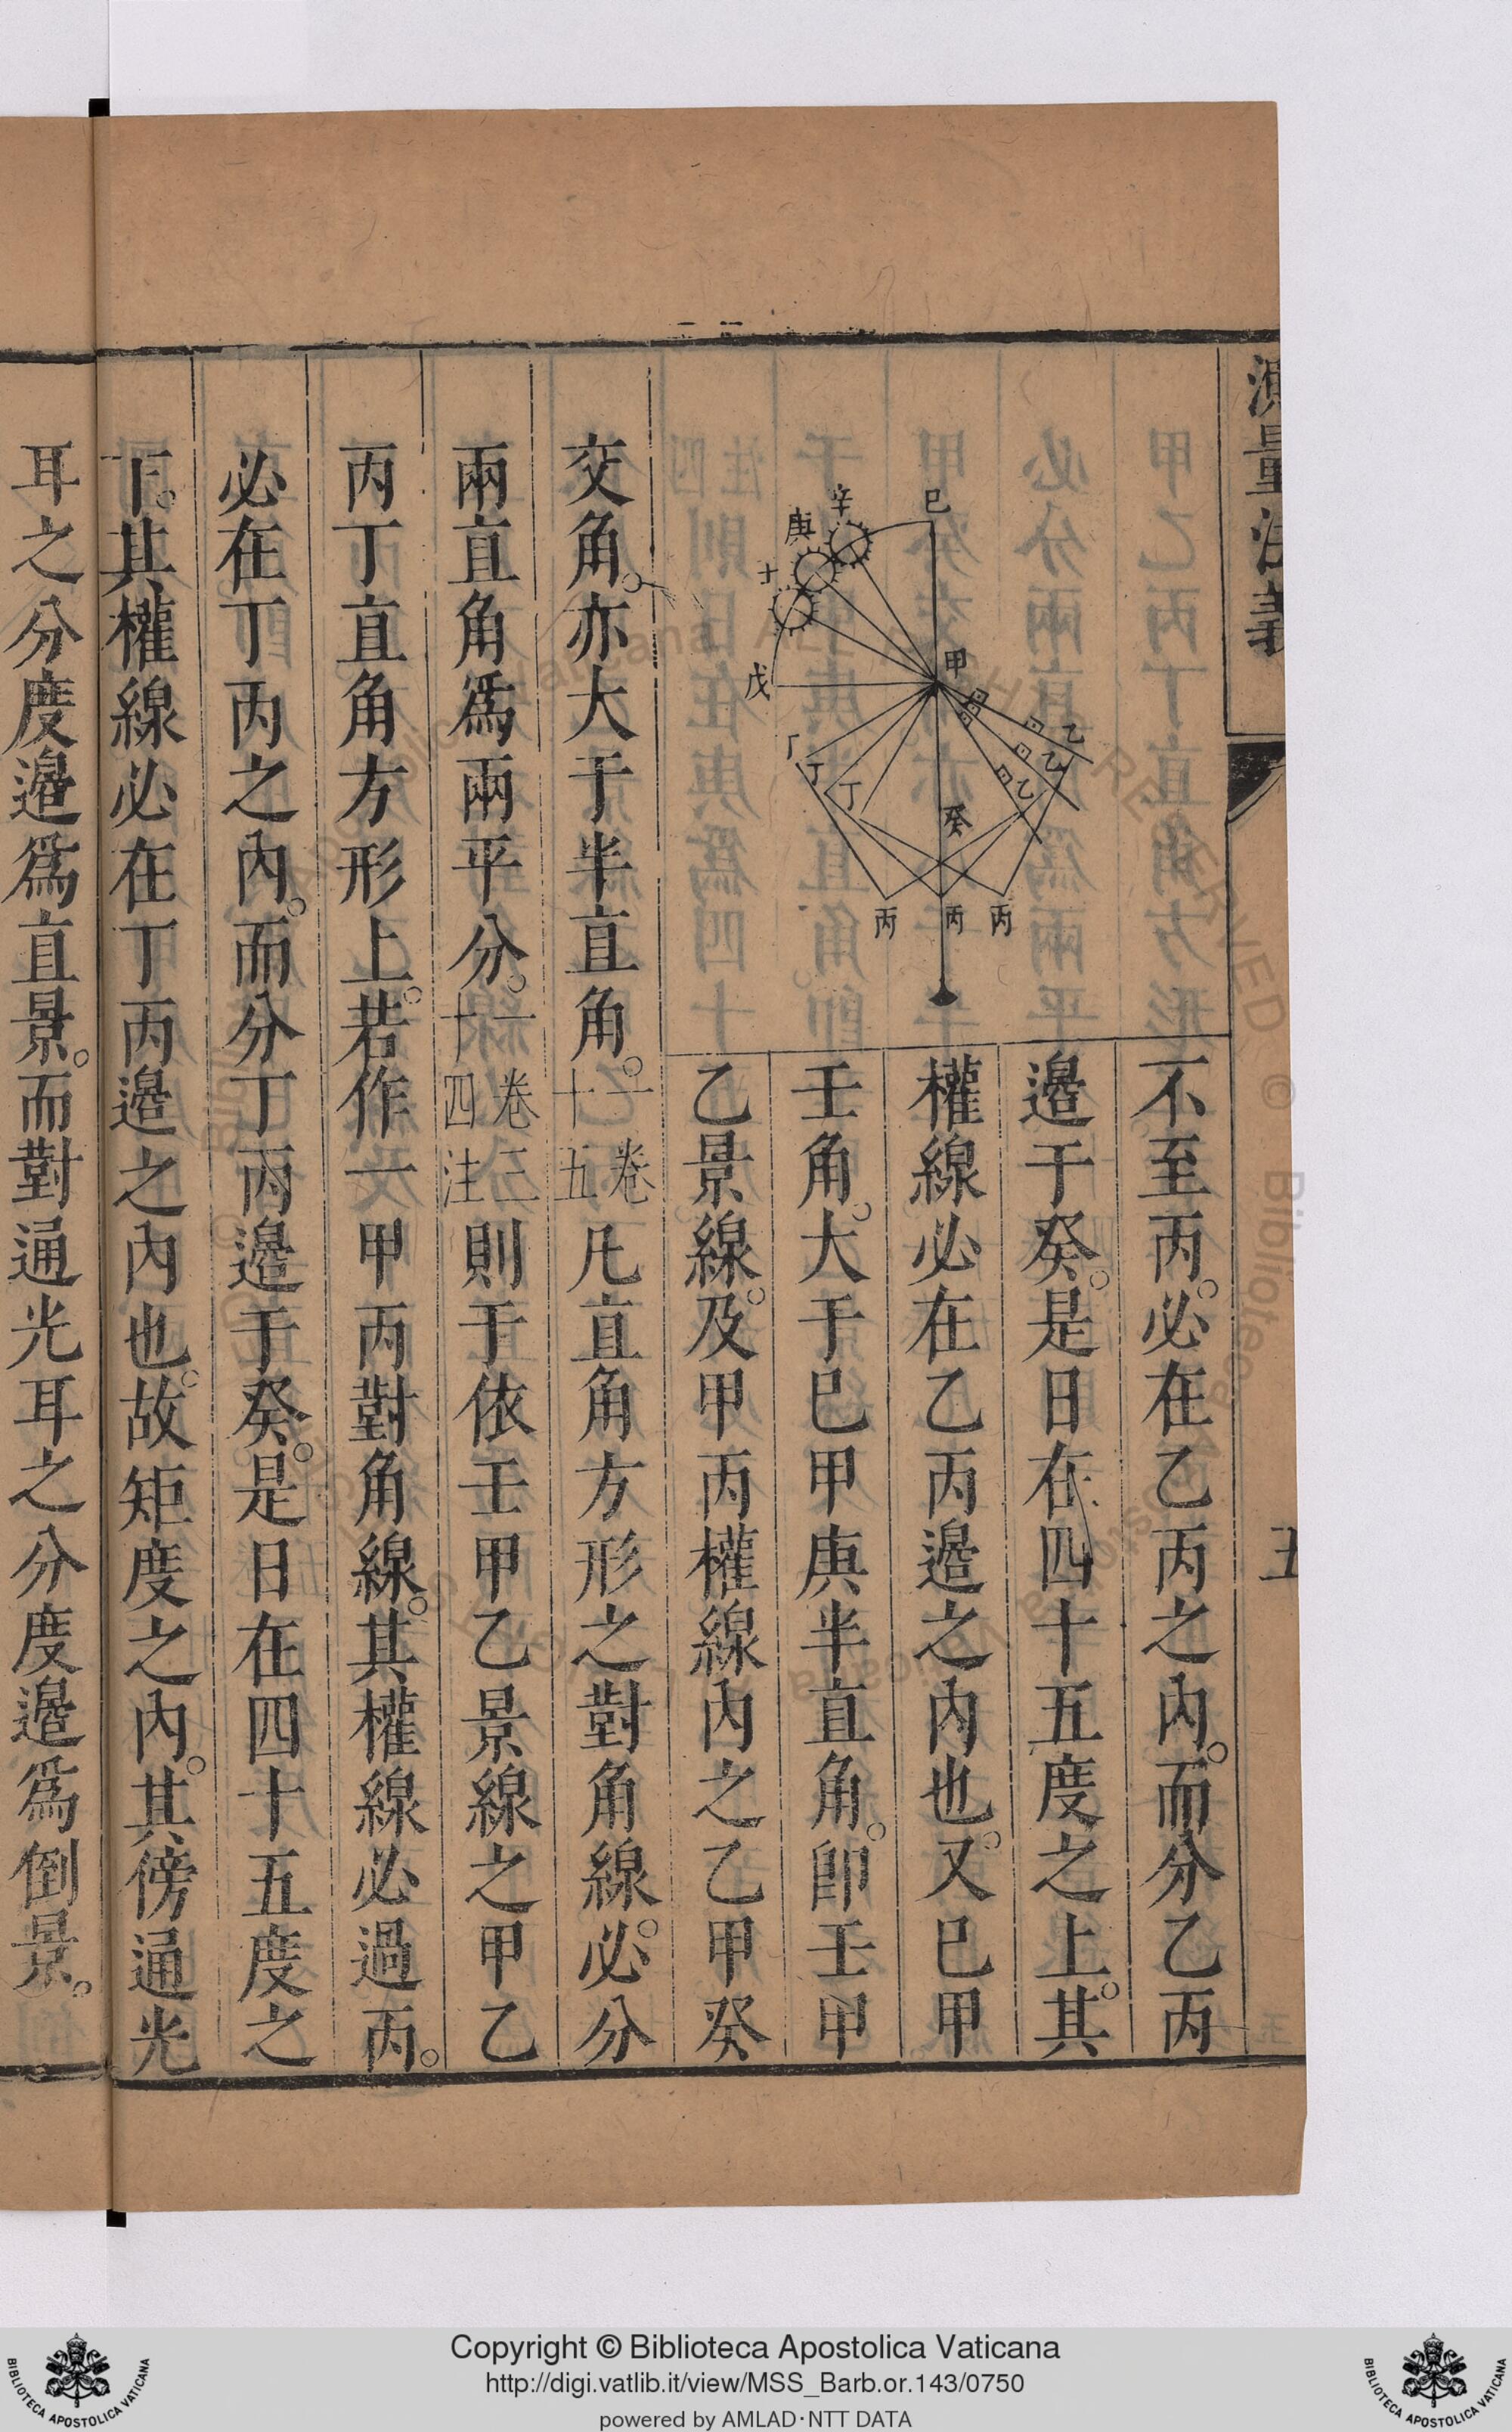 測量法義
五
己
辛
庚
戊
甲
乙
乙
乙
丁
丁
丁
癸
丙
丙
丙
不至丙。必在乙丙之內。而分乙丙
邉于癸。是日在四十五度之上。其
權線必在乙丙邉之內也。又巳甲
壬角。大于巳甲庚半直角。卽壬甲
乙景線。及甲丙權線內之乙甲癸
交角。亦大于半直角。一卷十五凡直角方形之對角線。必分
兩直角爲兩平分。一卷三十四注則于依壬甲乙景線之甲乙
丙丁直角方形上。若作一甲丙對角線。其權線必過丙。
必在丁丙之內。而分丁丙邉于癸。是日在四十五度之
下。其權線必在丁丙邉之內也。故矩度之內。其傍通光
耳之分度邉爲直景。而對通光耳之分度邉爲倒景。
Copyright © Biblioteca Apostolica Vaticana
http://digi.vatlib.it/view/MSS_Barb.or.143/0750
powered by AMLAD·NTT DATA
BIBLIOTECA APOSTOLICA VATICANA
BIBLIOTECA APOSTOLICA VATICANA